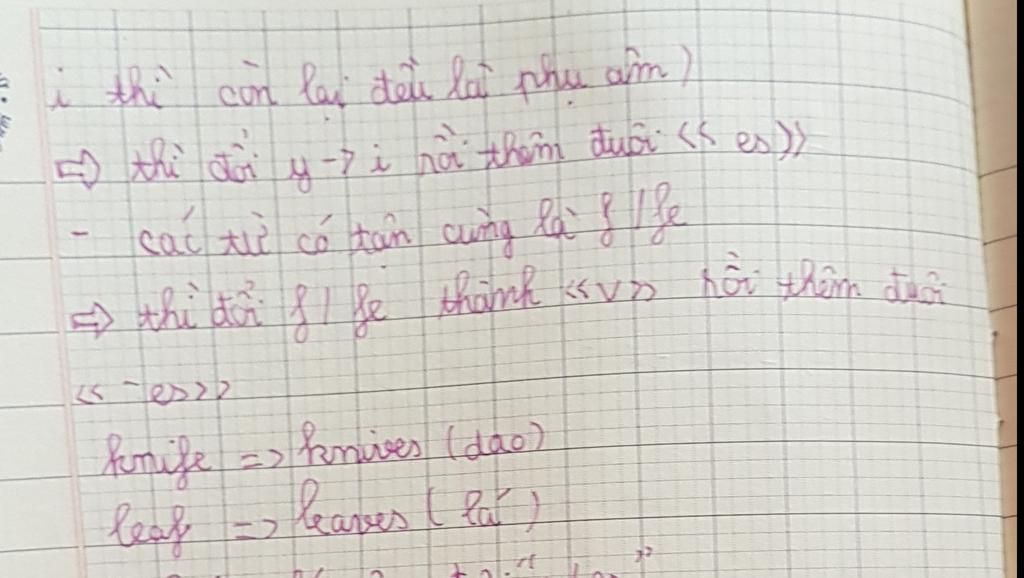 i thì còn lại đều là phụ âm)
⇨ thì đổi y -> i rồi thêm đuôi << es>>
- các từ có tận cùng là f / fe
⇨ thì đổi f / fe thành <<v>> rồi thêm đuôi
<< -es>>
knife => knives (dao)
leaf => leaves ( lá )